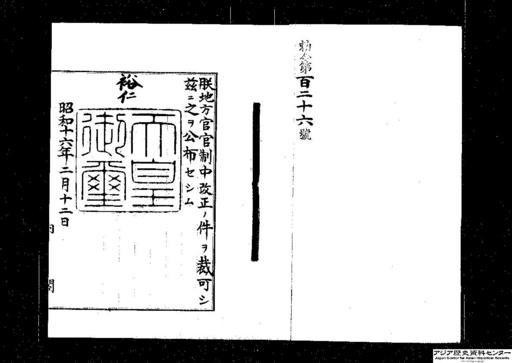 勅令第百二十六號
朕地方官官制中改正ノ件ヲ裁可シ
茲ニ之ヲ公布セシム
裕仁
天皇御璽
昭和十六年二月十二日
内閣
アジア歴史資料センター
Japan Center for Asian Historical Records